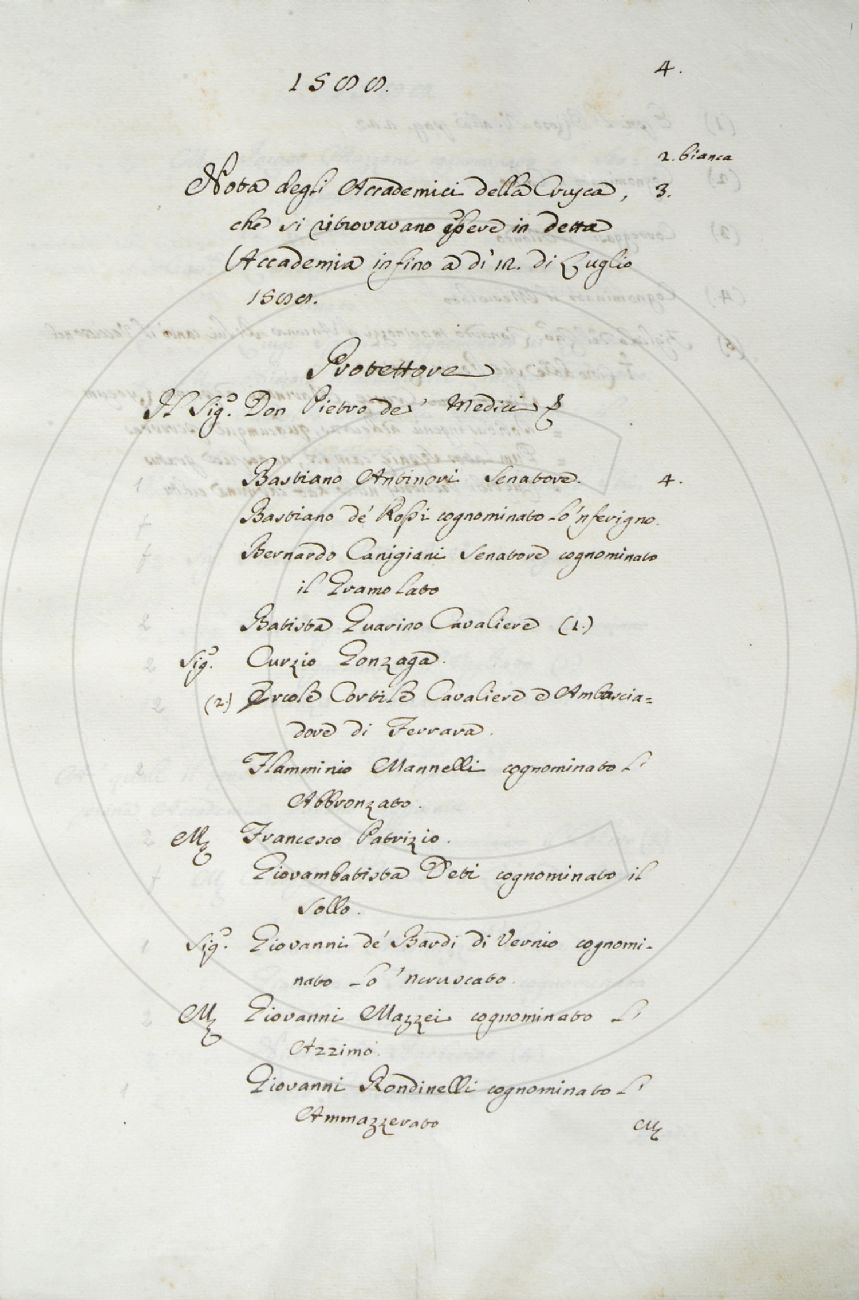 4.
1588.
2. bianca
Nota degli Accademici della Crusca, 3.
che si ritrovavano essere in detta
Accademia infino a dì 12. di Luglio
1588.
Protettore
Il Sig.r Don Pietro de' Medici
Bastiano Antinori Senatore. 4.
Bastiano de' Rossi cognominato lo 'nferigno.
Bernardo Canigiani Senatore cognominato
il Gramolato
Batista Guarino Cavaliere (1.)
Sig.r Curzio Gonzaga.
(2.) Ercole Cortile Cavaliere e Ambascia=
dore di Ferrara.
Flamminio Mannelli cognominato l'
Abbronzato.
M. Francesco Patrizio.
Giovambatista Deti cognominato il
Sollo.
Sig.r Giovanni de' Bardi di Vernio cognomi-
nato lo 'ncruscato.
M. Giovanni Mazzei cognominato l'
Azzimo.
Giovanni Rondinelli cognominato l'
Ammazzerato
M.